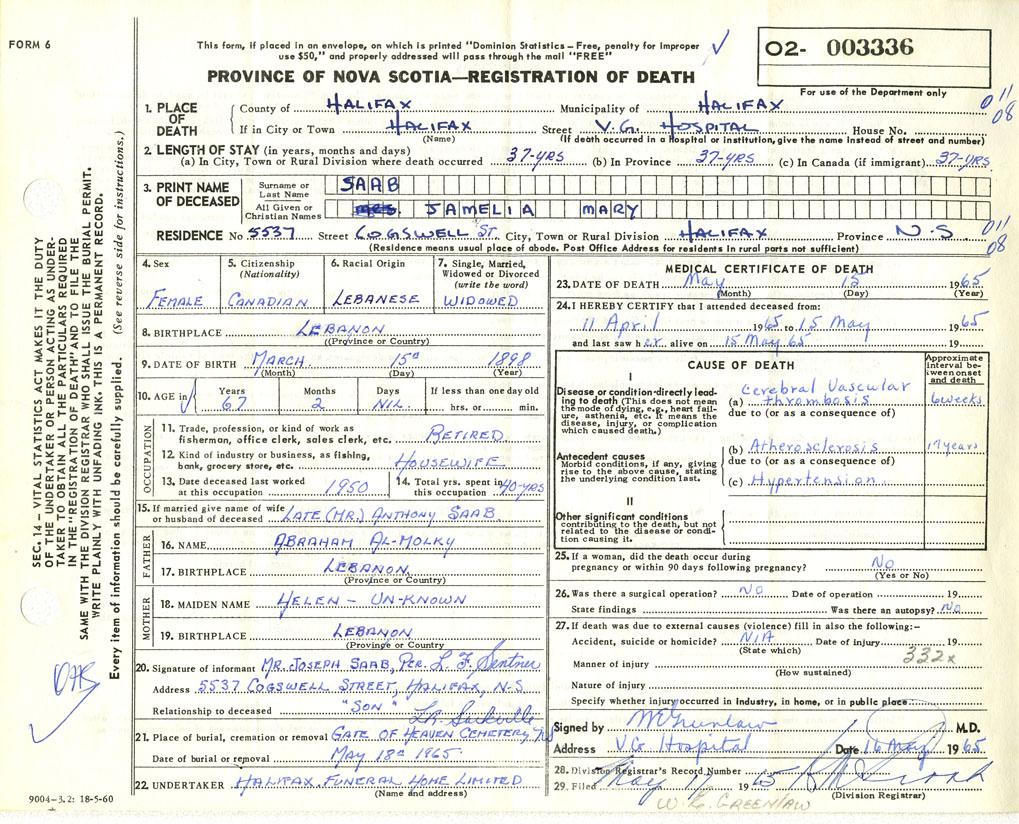 FORM 6
This form, if placed in an envelope, on which is printed "Dominion Statistics – Free, penalty for improper
use $50," and properly addressed will pass through the mail "FREE"
PROVINCE OF NOVA SCOTIA—REGISTRATION OF DEATH
02- 003336
For use of the Department only
SEC. 14 – VITAL STATISTICS ACT MAKES IT THE DUTY
OF THE UNDERTAKER OR PERSON ACTING AS UNDER-
TAKER TO OBTAIN ALL THE PARTICULARS REQUIRED
IN THE "REGISTRATION OF DEATH" AND TO FILE THE
SAME WITH THE DIVISION REGISTRAR WHO SHALL ISSUE THE BURIAL PERMIT.
WRITE PLAINLY WITH UNFADING INK. THIS IS A PERMANENT RECORD.
Every item of information should be carefully supplied. (See reverse side for instructions.)
1. PLACE OF DEATH
County of HALIFAX Municipality of HALIFAX
011
08
If in City or Town HALIFAX Street V.G. HOSPITAL House No.
(Name) (If death occurred in a Hospital or Institution, give the name instead of street and number)
2. LENGTH OF STAY (in years, months and days)
(a) In City, Town or Rural Division where death occurred 37-YRS (b) In Province 37-YRS (c) In Canada (if immigrant) 37-YRS
3. PRINT NAME OF DECEASED
Surname or Last Name SAAB
All Given or Christian Names MRS. JAMELIA MARY
RESIDENCE No 5537 Street COGSWELL ST. City, Town or Rural Division HALIFAX Province N.S
011
08
(Residence means usual place of abode. Post Office Address for residents in rural parts not sufficient)
4. Sex 5. Citizenship (Nationality) 6. Racial Origin 7. Single, Married, Widowed or Divorced (write the word)
FEMALE CANADIAN LEBANESE WIDOWED
8. BIRTHPLACE LEBANON
(Province or Country)
9. DATE OF BIRTH MARCH 15th 1898
(Month) (Day) (Year)
10. AGE in Years Months Days If less than one day old
67 2 NIL hrs. or min.
OCCUPATION
11. Trade, profession, or kind of work as
fisherman, office clerk, sales clerk, etc. RETIRED
12. Kind of industry or business, as fishing,
bank, grocery store, etc. HOUSEWIFE
13. Date deceased last worked at this occupation 1950 14. Total yrs. spent in this occupation 40-YRS
15. If married give name of wife
or husband of deceased LATE (MR.) ANTHONY SAAB
FATHER
16. NAME ABRAHAM AL-MOLKY
17. BIRTHPLACE LEBANON
(Province or Country)
MOTHER
18. MAIDEN NAME HELEN - UN-KNOWN
19. BIRTHPLACE LEBANON
(Province or Country)
20. Signature of informant MR. JOSEPH SAAB, PER. L. F. Sentner
Address 5537 COGSWELL STREET, HALIFAX, N-S
Relationship to deceased "SON"
Lr. Sackville
21. Place of burial, cremation or removal GATE OF HEAVEN CEMETERY, NS
Date of burial or removal MAY 18th 1965
22. UNDERTAKER HALIFAX FUNERAL HOME LIMITED
(Name and address)
9004-3.2: 18-5-60
MEDICAL CERTIFICATE OF DEATH
23. DATE OF DEATH May 15 1965
(Month) (Day) (Year)
24. I HEREBY CERTIFY that I attended deceased from:
11 April 1965 to 15 May 1965
and last saw her alive on 15 May 65
CAUSE OF DEATH
Approximate interval between onset and death
I
Disease or condition directly leading to death (This does not mean the mode of dying, e.g., heart failure, asthenia, etc. It means the disease, injury, or complication which caused death.)
Cerebral Vascular
(a) thrombosis 6 weeks
due to (or as a consequence of)
Antecedent causes
Morbid conditions, if any, giving rise to the above cause, stating the underlying condition last.
(b) Atherosclerosis 17 years
due to (or as a consequence of)
(c) Hypertension
II
Other significant conditions
contributing to the death, but not related to the disease or condition causing it.
25. If a woman, did the death occur during
pregnancy or within 90 days following pregnancy? No
(Yes or No)
26. Was there a surgical operation? NO Date of operation 19
State findings Was there an autopsy? No
27. If death was due to external causes (violence) fill in also the following:-
Accident, suicide or homicide? N/A Date of injury 19
(State which)
332x
Manner of injury
(How sustained)
Nature of injury
Specify whether injury occurred in industry, in home, or in public place
Signed by WK Greenlaw M.D.
Address V.G. Hospital Date 16 May 1965
28. Division Registrar's Record Number
29. Filed May 17 1965
(Division Registrar)
W. K. GREENLAW